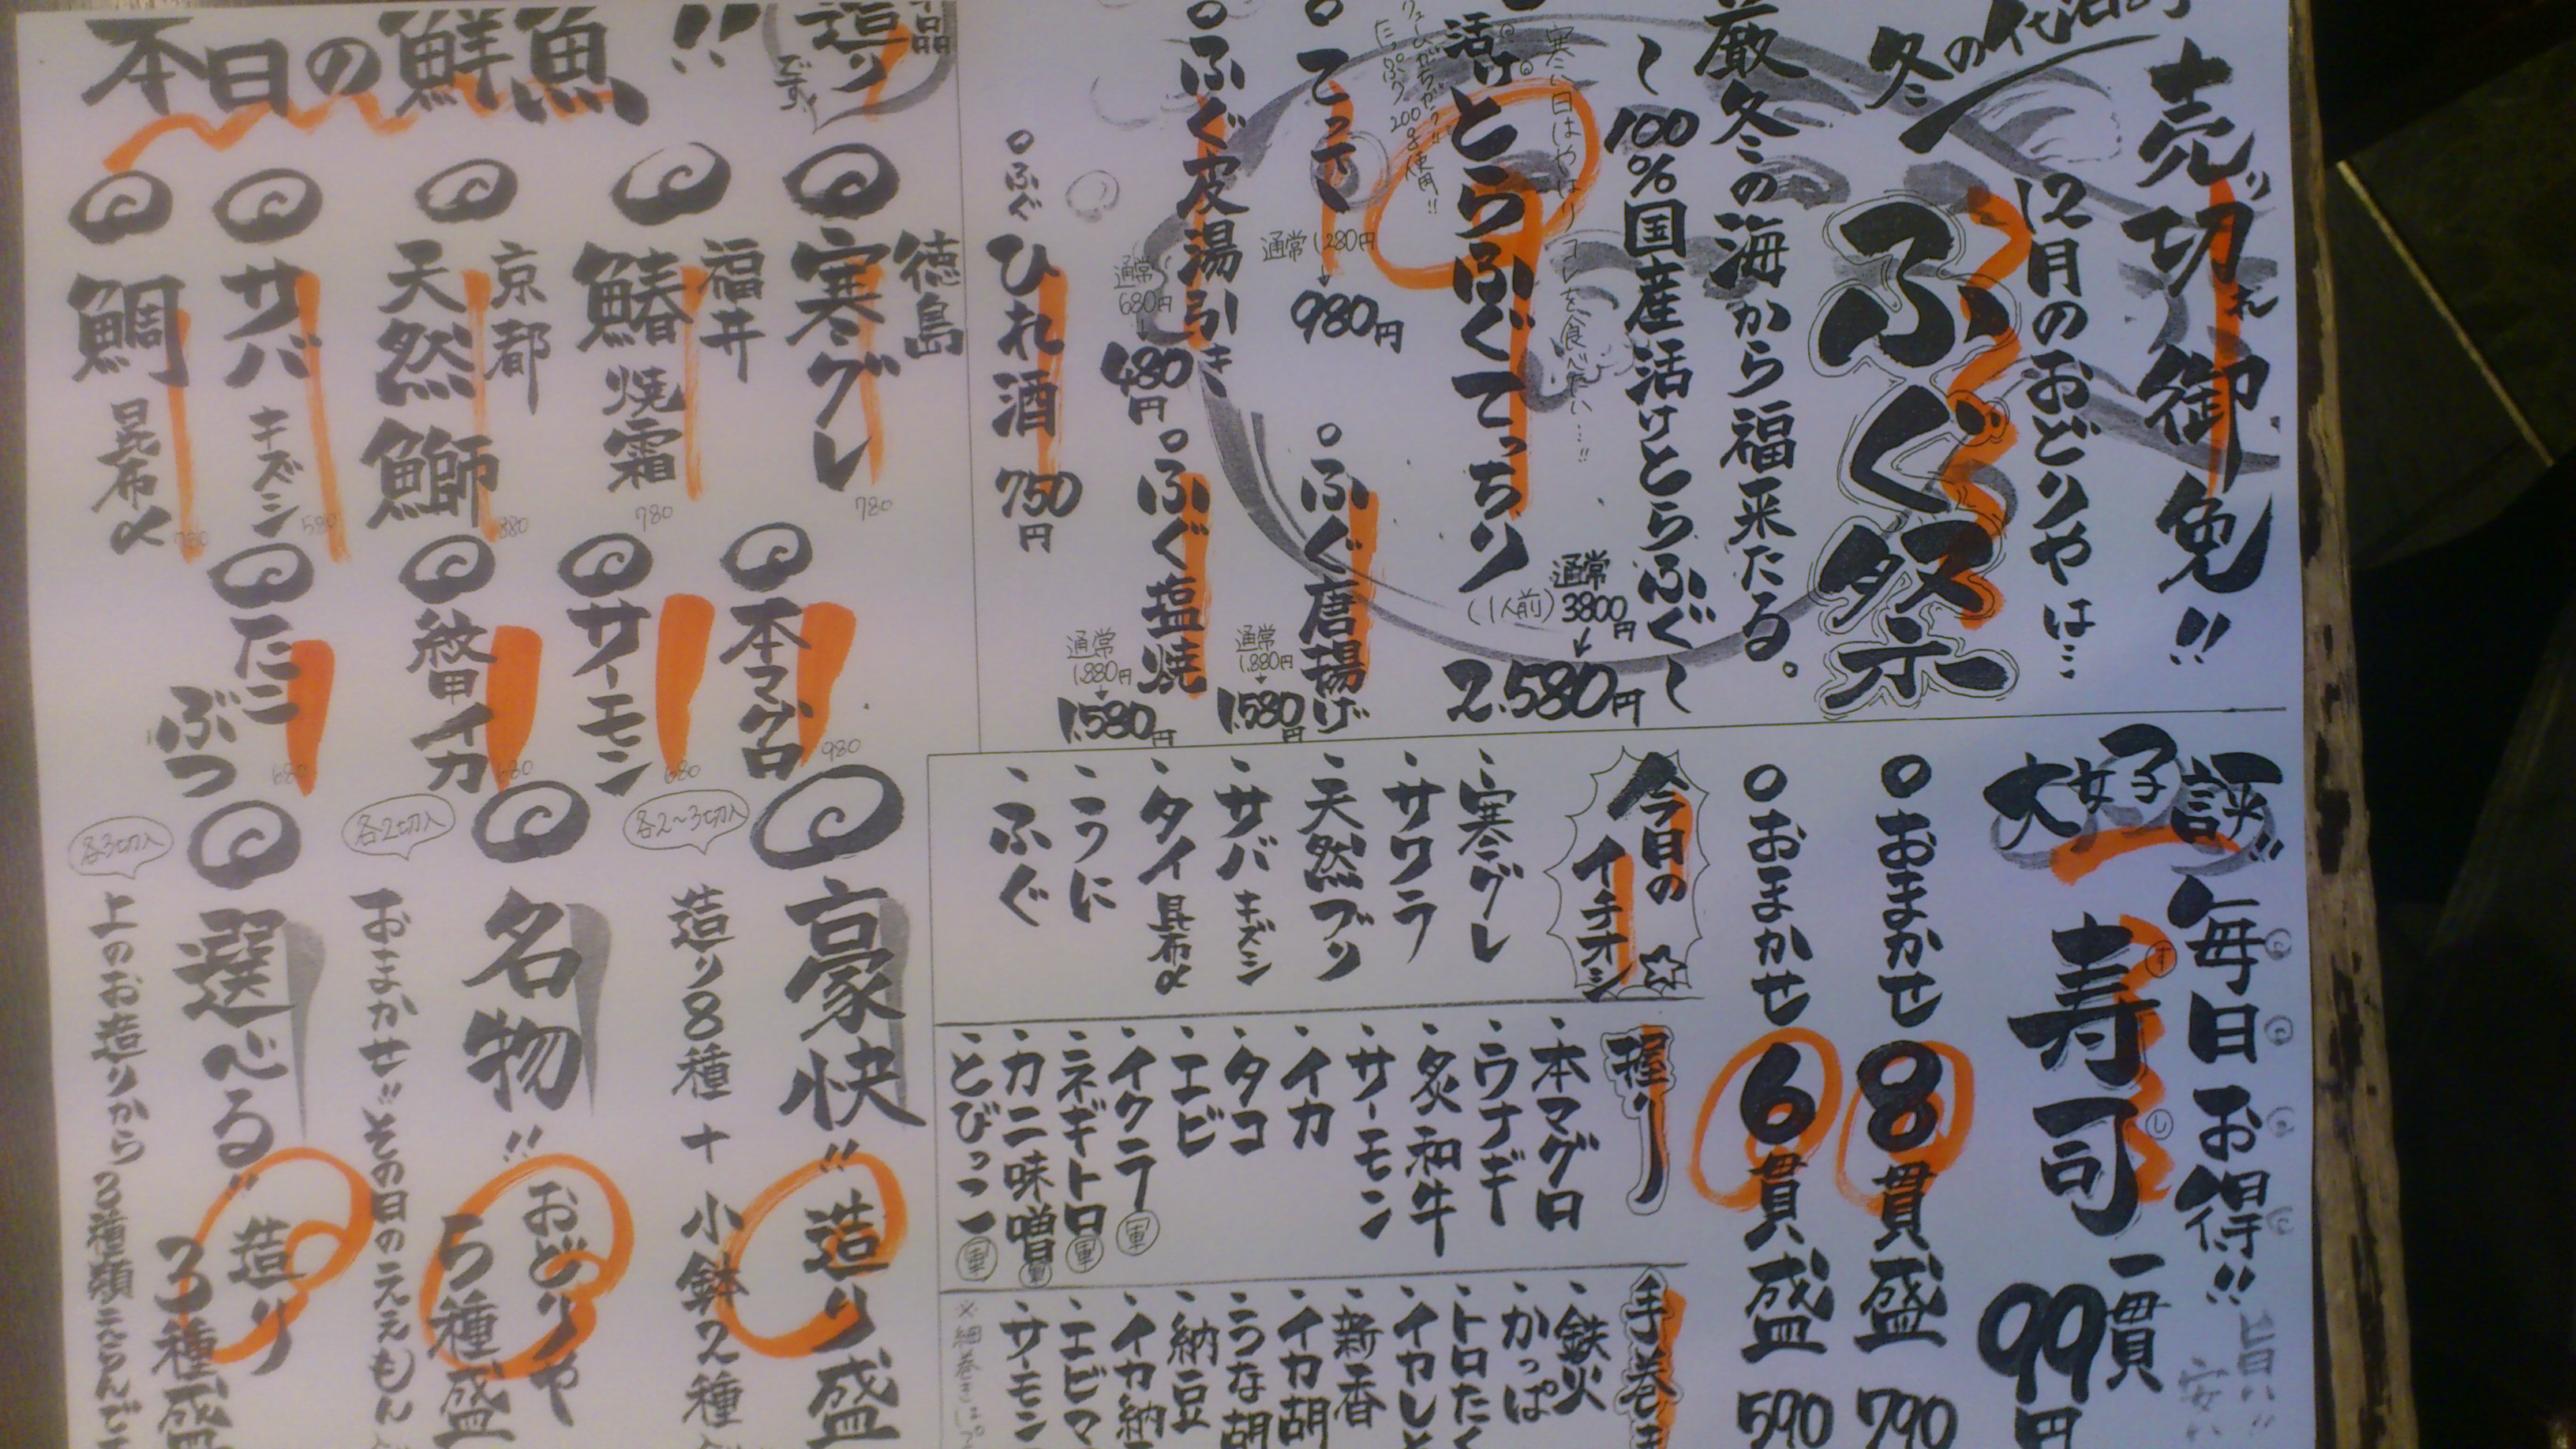 売り切れ御免!!
冬の代
12月のおどりやは…
ふぐ祭
厳冬の海から福来たる。
〜100%国産活けとらふぐ〜
寒い日はやはりコレを食べたい…!!
活けとらふぐてっちり
(1人前)
通常3800円
↓
2.580円
たっぷり200g使用!!
てっさ
通常1,280円
↓
980円
ふぐ唐揚げ
通常1,880円
↓
1.580円
ふぐ皮湯引き
通常680円
↓
480円
ふぐ塩焼
通常1,880円
↓
1.580円
ふぐひれ酒 750円
大好評!!
毎日お得!!
旨い!!
安い
寿司
すし
一貫
99円
おまかせ8貫盛 790
おまかせ6貫盛 590
今日のイチオシ☆
・寒グレ
・サワラ
・天然ブリ
・サバ キズシ
・タイ 昆布〆
・うに
・ふぐ
握り
・本マグロ
・ウナギ
・炙和牛
・サーモン
・イカ
・タコ
・エビ
・イクラ 軍
・ネギトロ 軍
・カニ味噌 軍
・とびっこ 軍
手巻き
・鉄火
・かっぱ
・トロたく
・イカしそ
・新香
・イカ胡
・うな胡
・納豆
・イカ納
・エビマ
・サーモン
※細巻き
本日の鮮魚!!
造り
です!
徳島
寒グレ 780
福井
鰆 焼霜 780
京都
天然鰤 880
サバ キズシ 580
鯛 昆布〆 780
本マグロ 980
サーモン 680
紋甲イカ 680
たこぶつ 680
豪快!! 造り盛
造り8種+小鉢2種
各2〜3切入
名物!! おどりや5種盛
おまかせ!!その日のええもん
各2切入
選べる!! 造り3種盛
上のお造りから3種類えらんで
各3切入